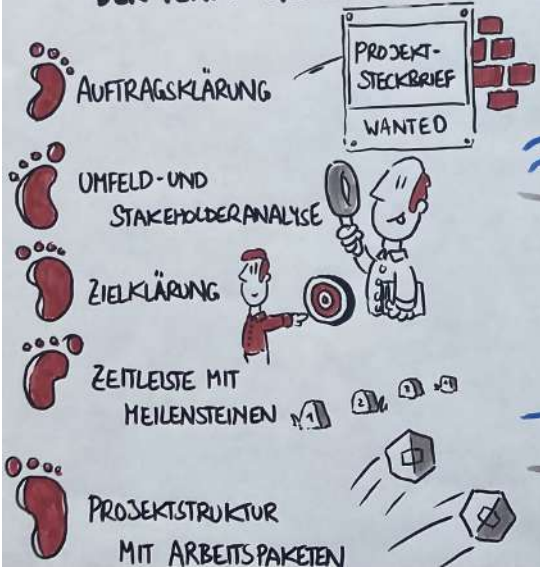 AUFTRAGSKLÄRUNG
PROJEKT-
STECKBRIEF
WANTED
UMFELD-UND
STAKEHOLDERANALYSE
ZIELKLÄRUNG
ZEITLEISTE MIT
MEILENSTEINEN
1
2
3
4
PROJEKTSTRUKTUR
MIT ARBEITSPAKETEN